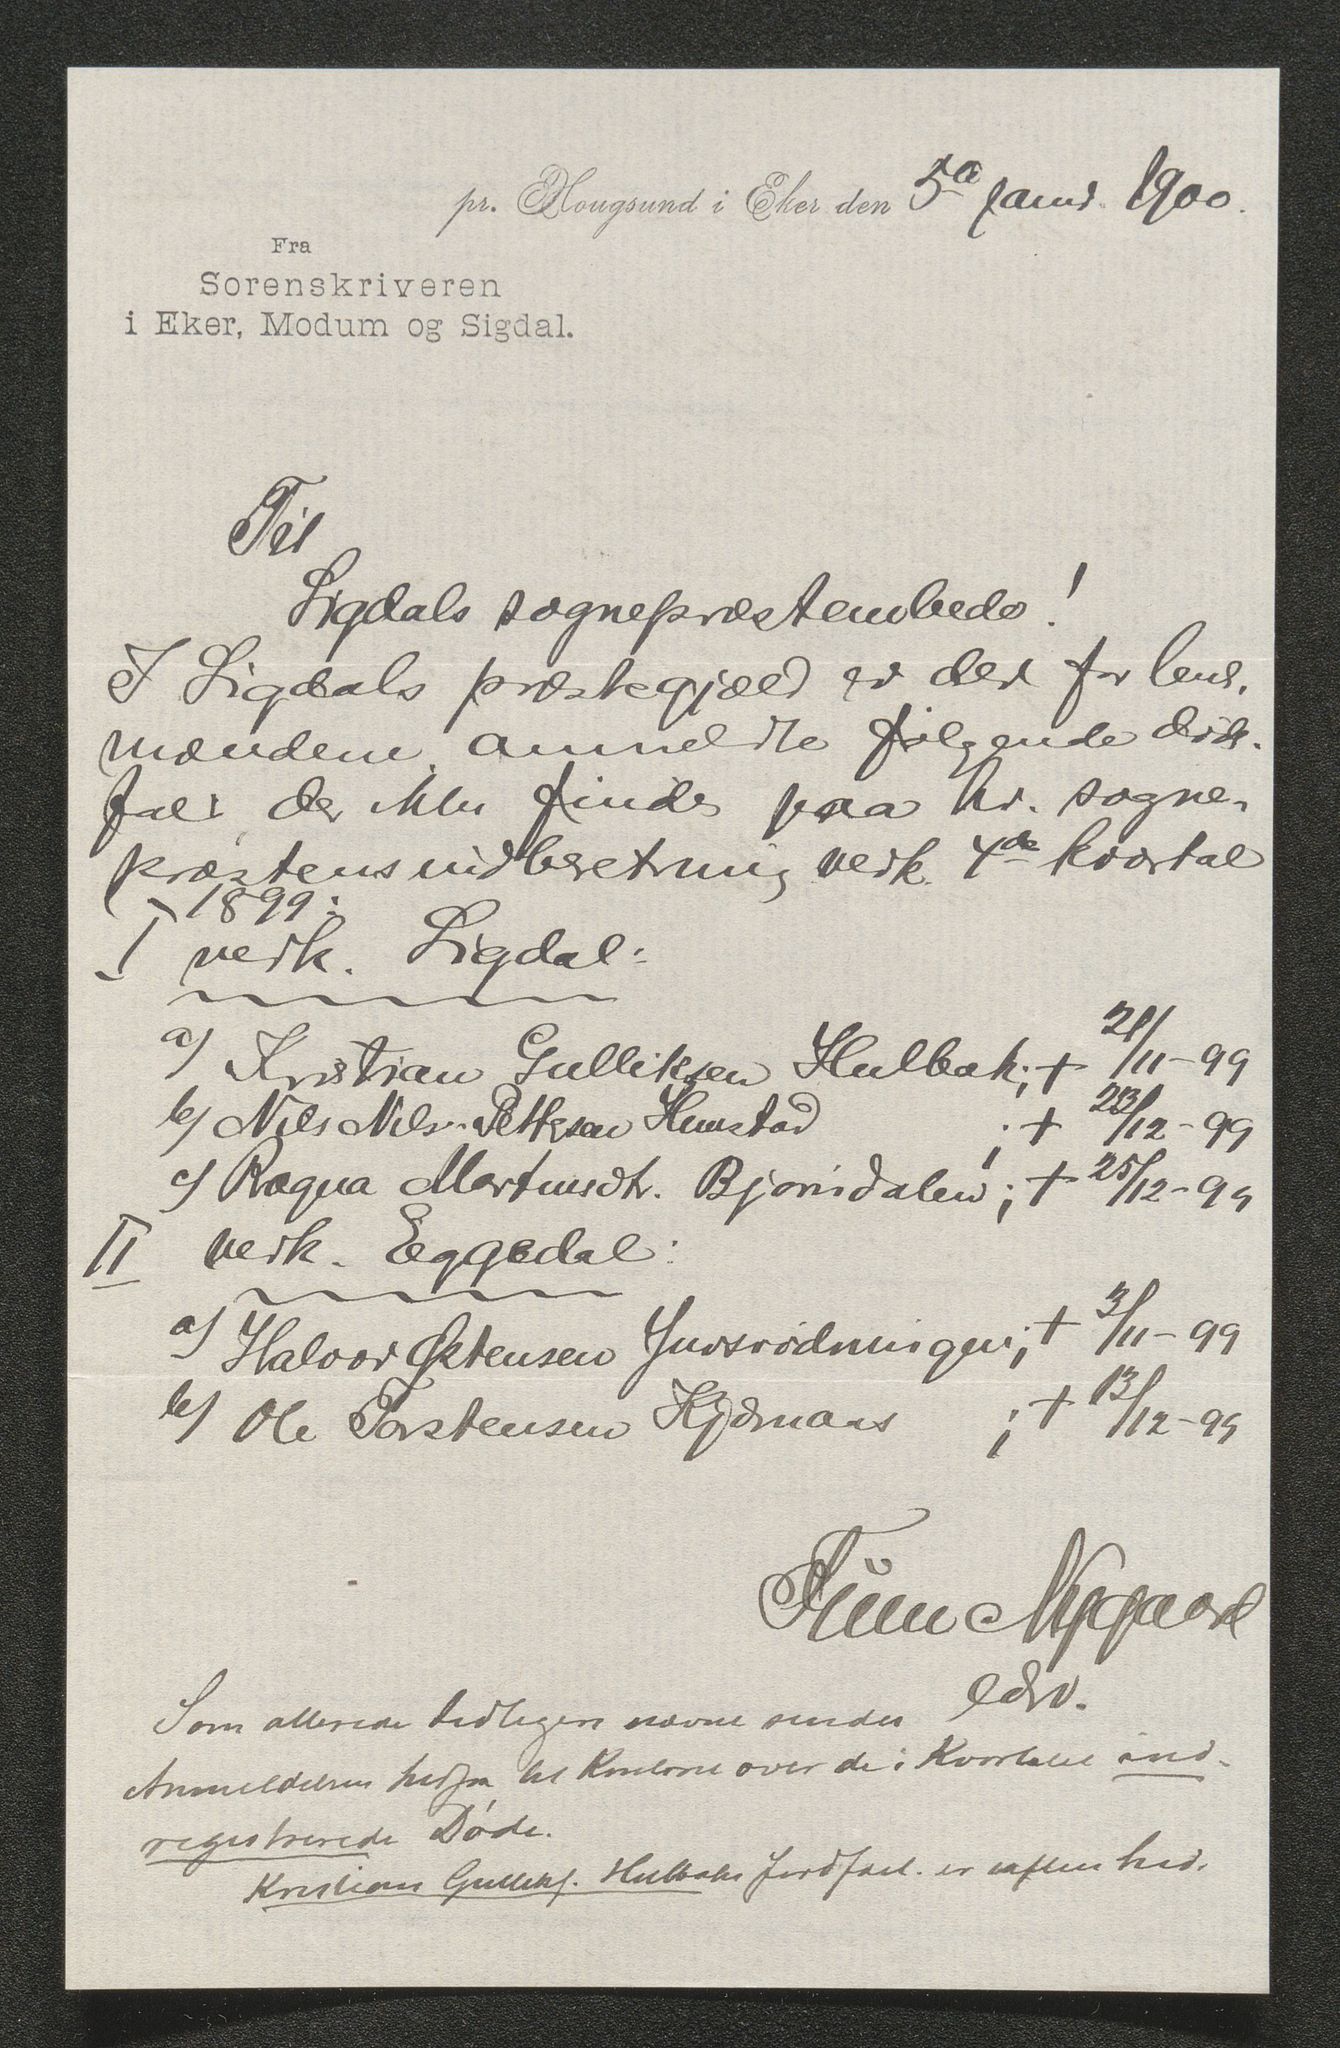 pr. Hougsund i Eker den 5 januar 1900.
Fra
Sorenskriveren
i Eker, Modum og Sigdal.
Til
Sigdals sogneprestembede!
I Sigdals prestegjæld er der for lens-
mændene anmeldte følgende døds-
fald der ikke findes paa hr. sogne-
prestens indberetning vedk. 4de kvartal
1899:
I vedk. Sigdal:
a) Kristian Gulliksen Hulbak; + 21/11-99
b) Nils Nils. Pettersen ; + 23/12-99
c) Ragna Martinsdtr. Bjørndalen; + 25/12-99
II vedk. Eggedal:
a) Halvor Østensen ; + 3/11-99
b) Ole Torstensen ; + 13/12-99
Nygaard
edsv.
Som allerede tidligere nævnt sendes
Anmeldelsen herfra til Kontoret over de i Kvartalet ind-
registrerede Døde.
Kristian Gulliks. Hulbaks er